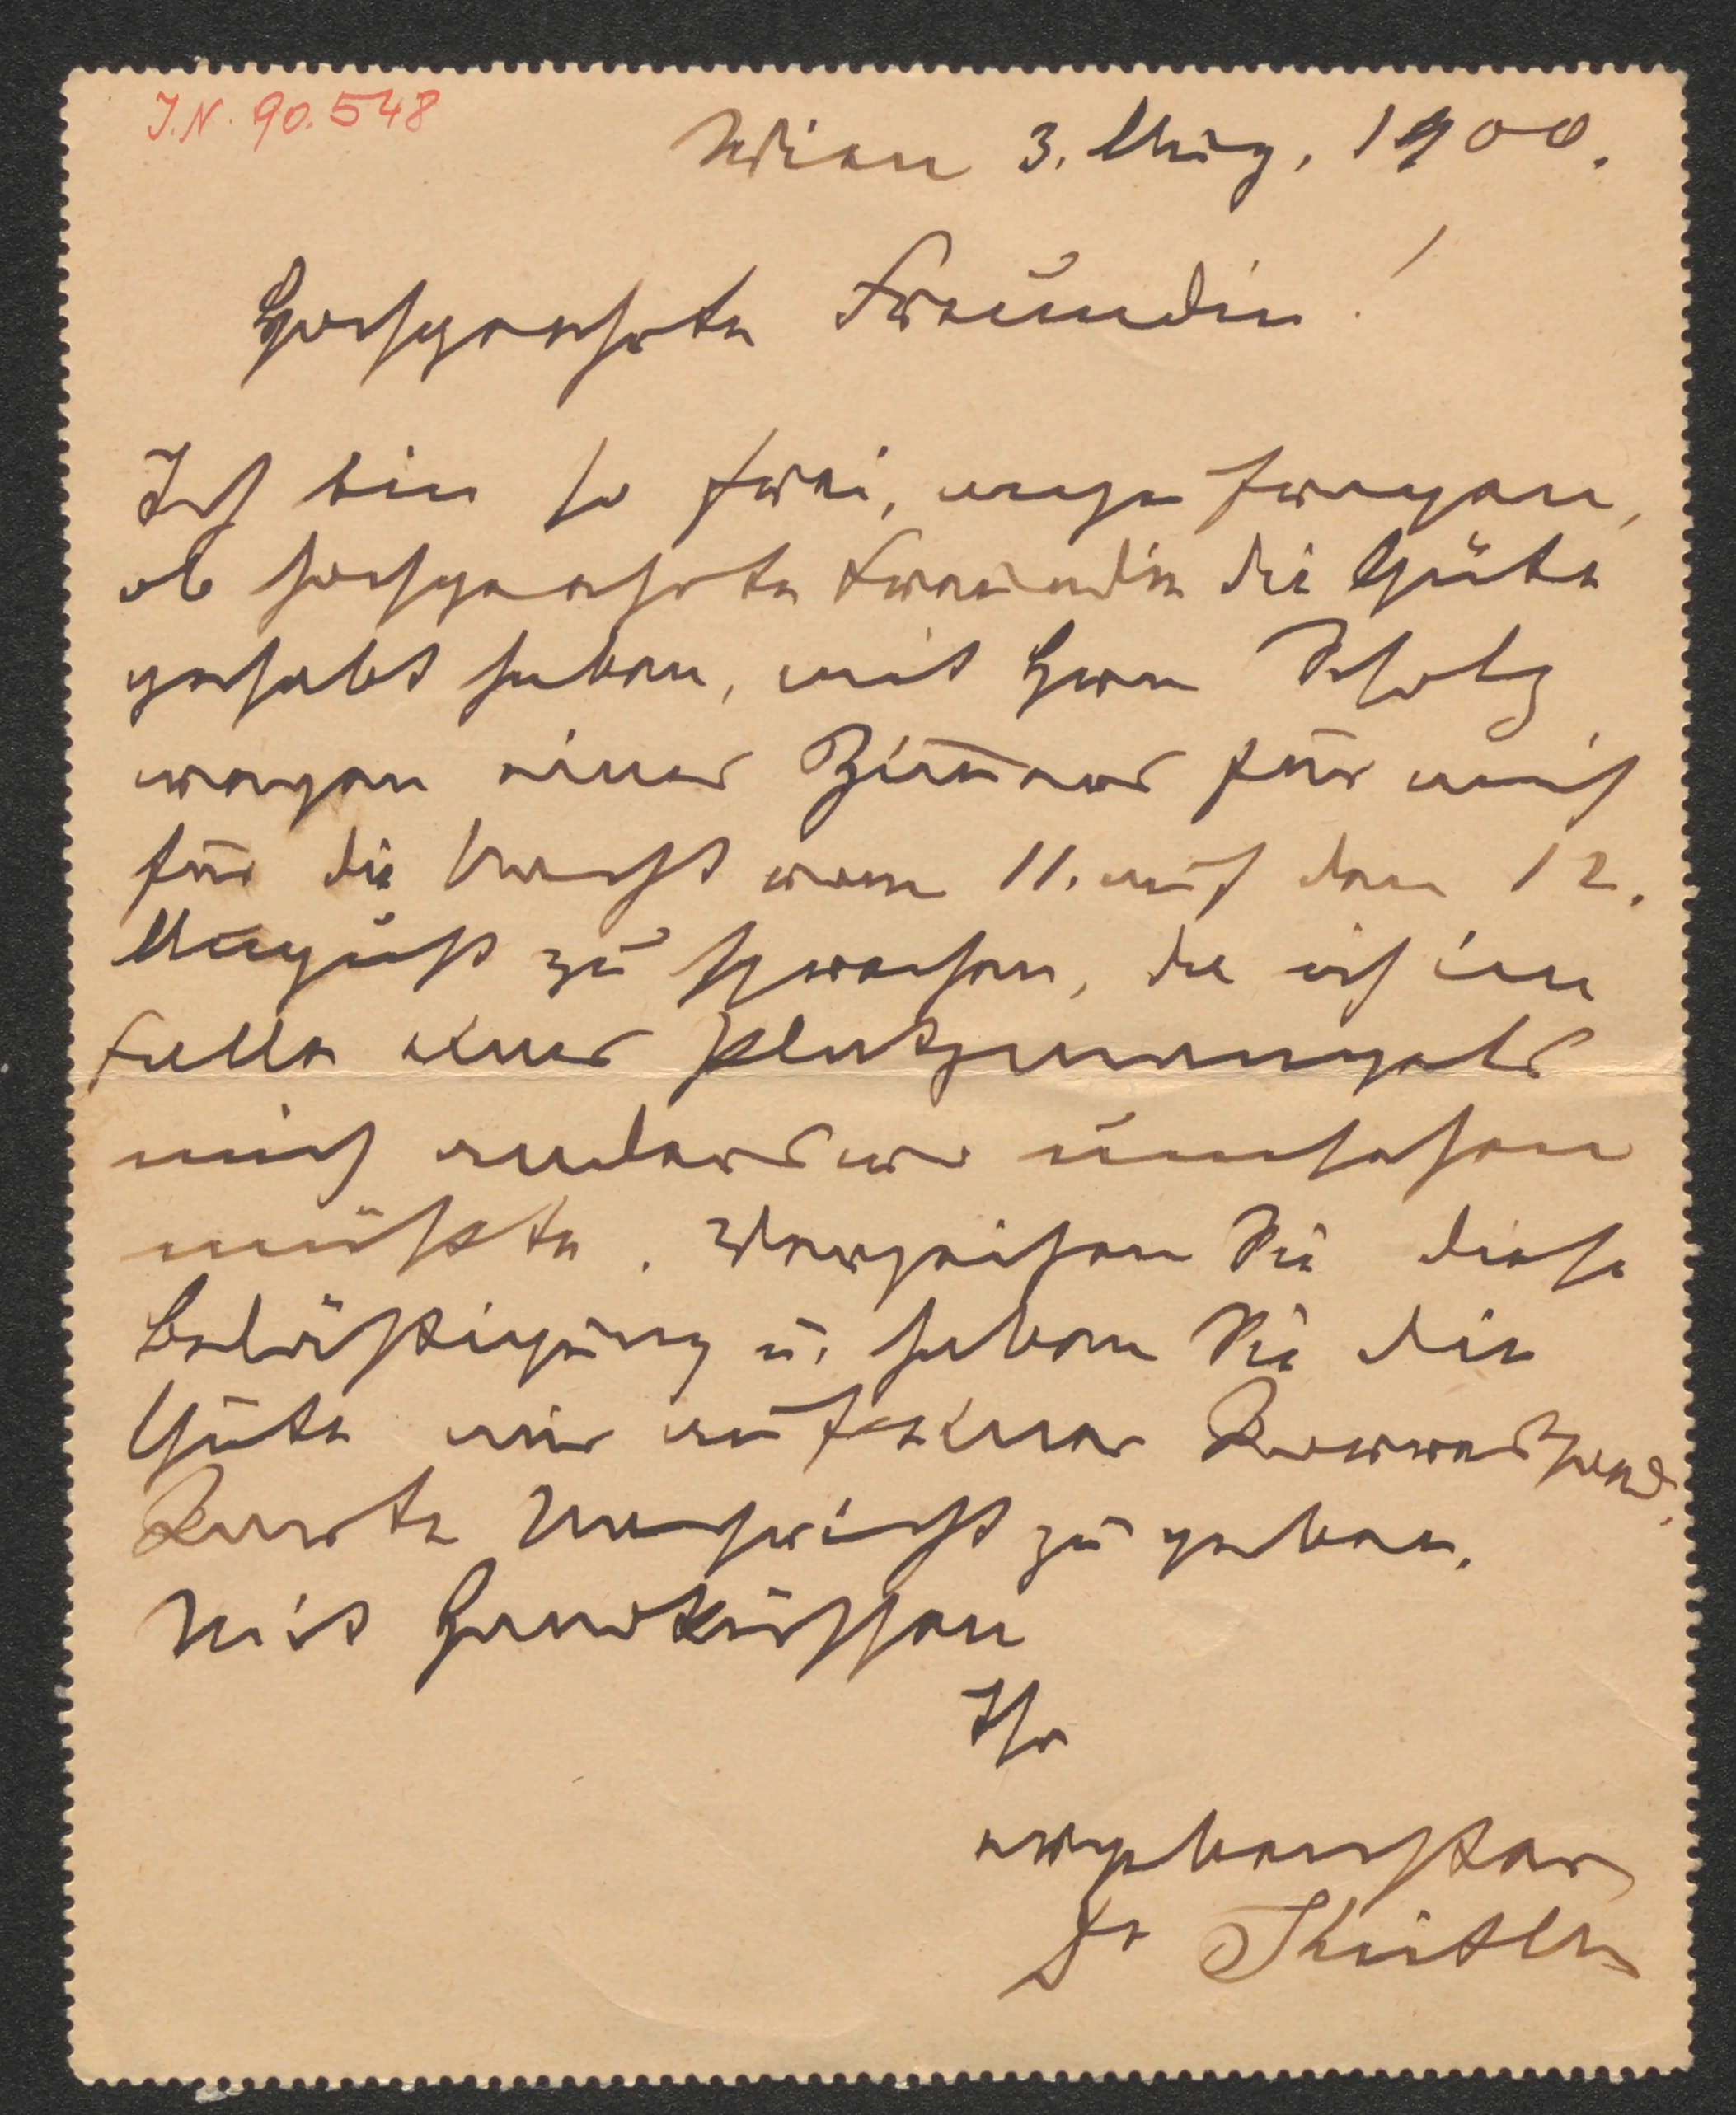 I.N. 90.548
Wien 3. Aug. 1900.
Hochgeehrte Freundin!
Ich bin so frei, anzufragen,
ob hochgeehrte Freundin die Güte
gehabt haben, mit Herrn Scholz
wegen eines Zimmers für mich
für die Nacht vom 11. auf den 12.
August zu sprechen, da ich im
Falle eines Platzmangels
mich anderswo umsehen
müßte. Verzeihen Sie diese
Belästigung u. haben Sie die
Güte mir auf einer Correspond.
Karte Nachricht zu geben.
Mit Handküssen
Ihr
ergebenster
Dr